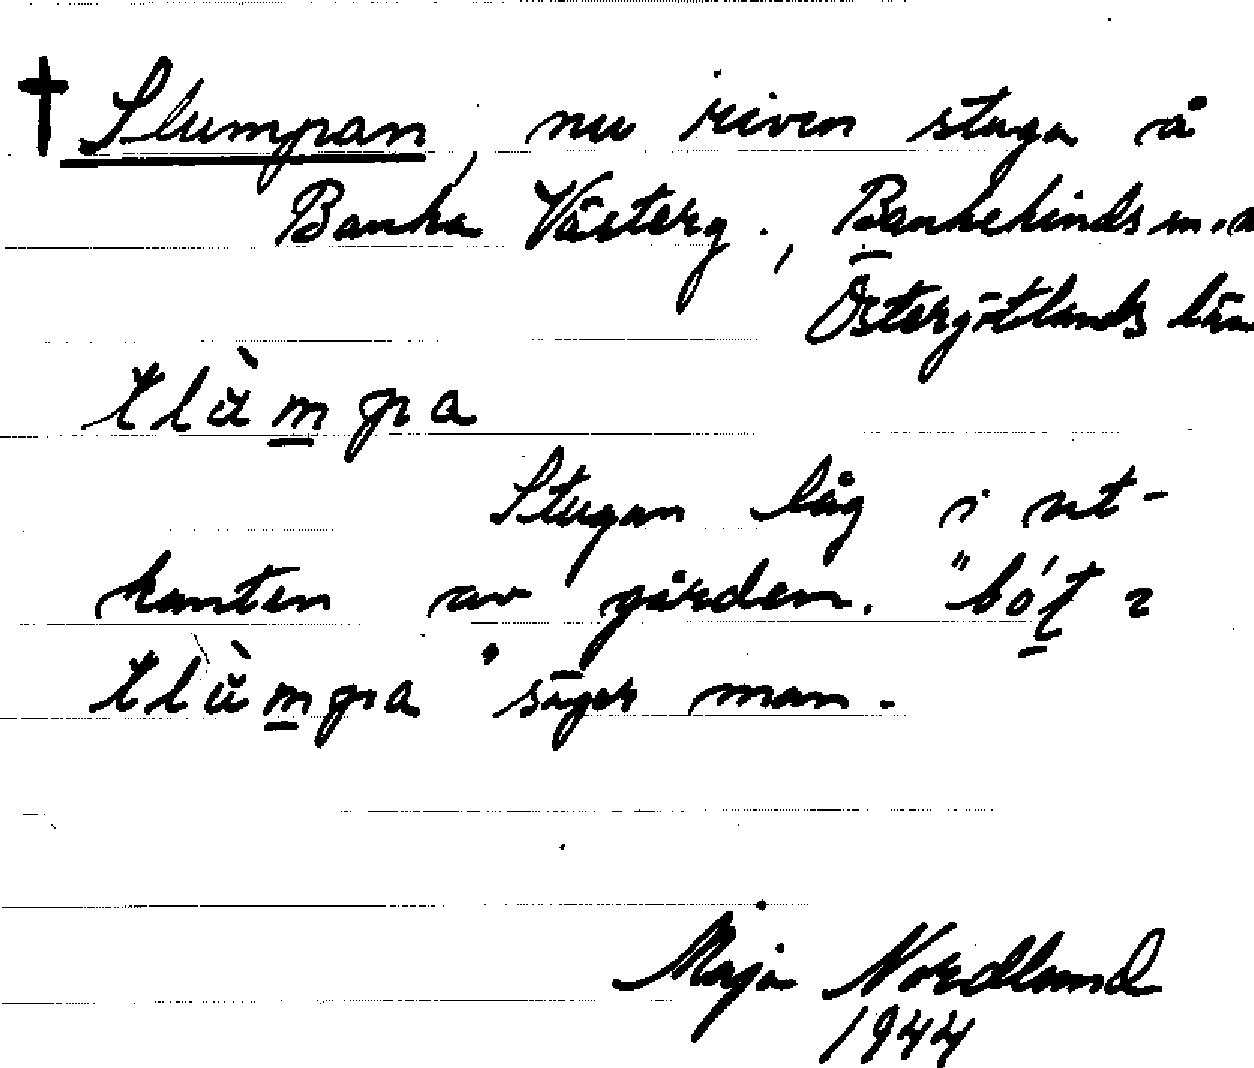 † Slumpan, nu riven stuga å
Banka Västerg., Bankekinds sn.
Östergötlands län
slu̇̀m̲pa
Stugan låg i ut-
kanten av gården. "bót̲ ı
slu̇̀m̲pa" säger man.
Maja Nordlund
1944